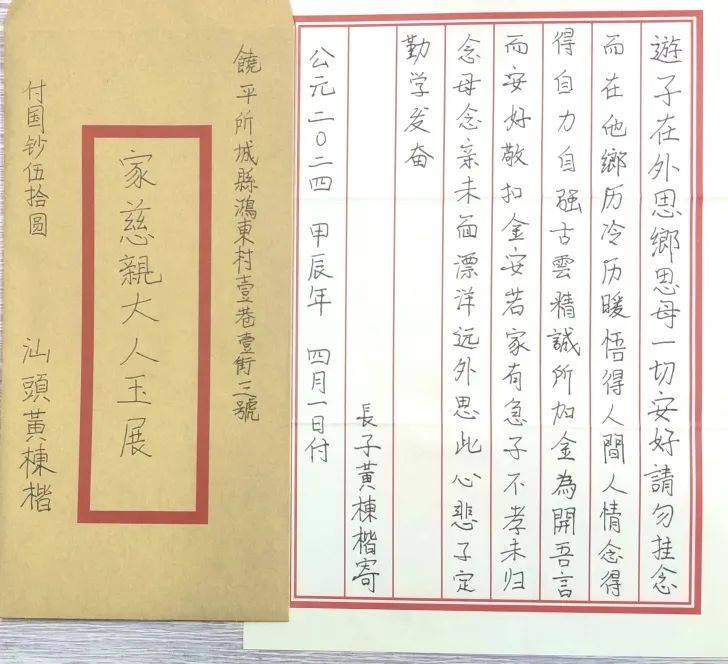 遊子在外思鄉思母一切安好請勿挂念
而在他鄉历冷历暖悟得人間人情念得
得自力自强古雲精誠所加金為開吾言
而安好敬扣金安若家有急子不孝未归
念母念亲未面漂洋远外思此心悲子定
勤学发奋
長子黃棟楷寄
公元二〇二四 甲辰年 四月一日付
饒平所城縣鴻東村壹巷壹街三號
家慈親大人玉展
汕頭黃棟楷
付国钞伍拾圆